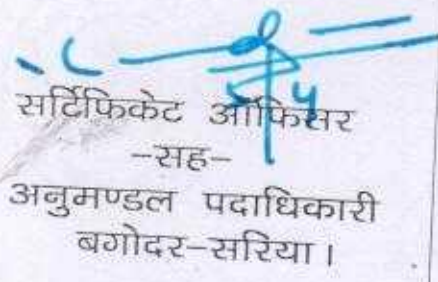 सर्टिफिकेट ऑफिसर
-सह-
अनुमण्डल पदाधिकारी
बगोदर-सरिया।